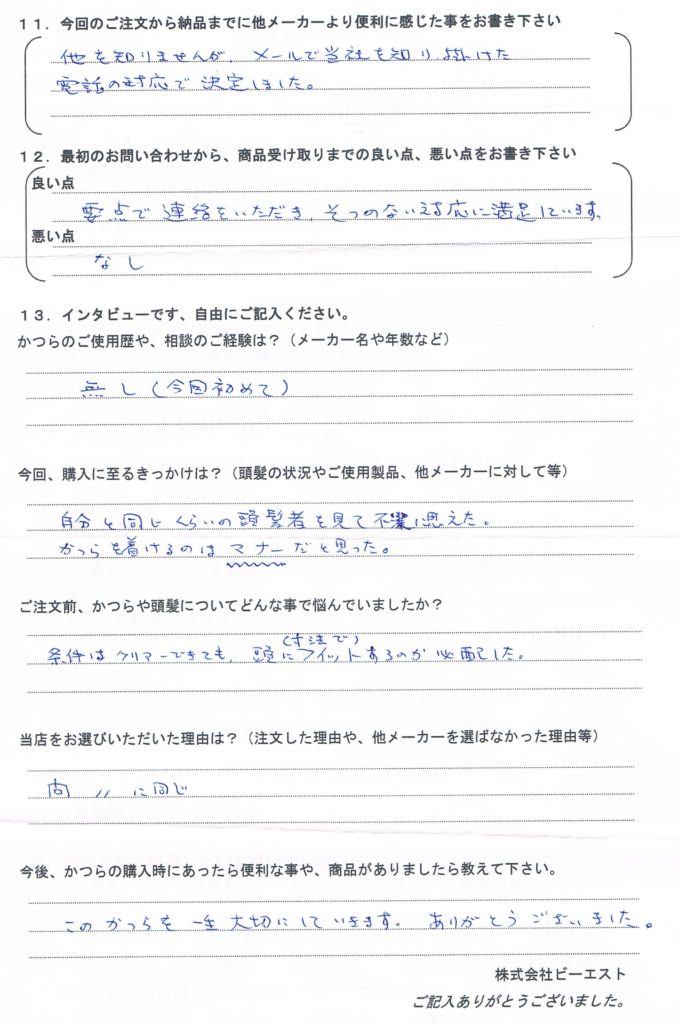 11．今回のご注文から納品までに他メーカーより便利に感じた事をお書き下さい
他を知りませんが、メールで当社を知り掛けた
電話の対応で決定しました。
12．最初のお問い合わせから、商品受け取りまでの良い点、悪い点をお書き下さい
良い点
要点で連絡をいただき、そつのない対応に満足しています。
悪い点
なし
13．インタビューです、自由にご記入ください。
かつらのご使用歴や、相談のご経験は？（メーカー名や年数など）
無し（今回初めて）
今回、購入に至るきっかけは？（頭髪の状況やご使用製品、他メーカーに対して等）
自分と同じくらいの頭髪者を見て に思えた。
かつらを着けるのはマナーだと思った。
ご注文前、かつらや頭髪についてどんな事で悩んでいましたか？
（寸法で）
条件はクリアーできても、頭にフィットするのか心配した。
当店をお選びいただいた理由は？（注文した理由や、他メーカーを選ばなかった理由等）
問 11 に同じ
今後、かつらの購入時にあったら便利な事や、商品がありましたら教えて下さい。
このかつらを一生大切にしていきます。ありがとうございました。
株式会社ビーエスト
ご記入ありがとうございました。